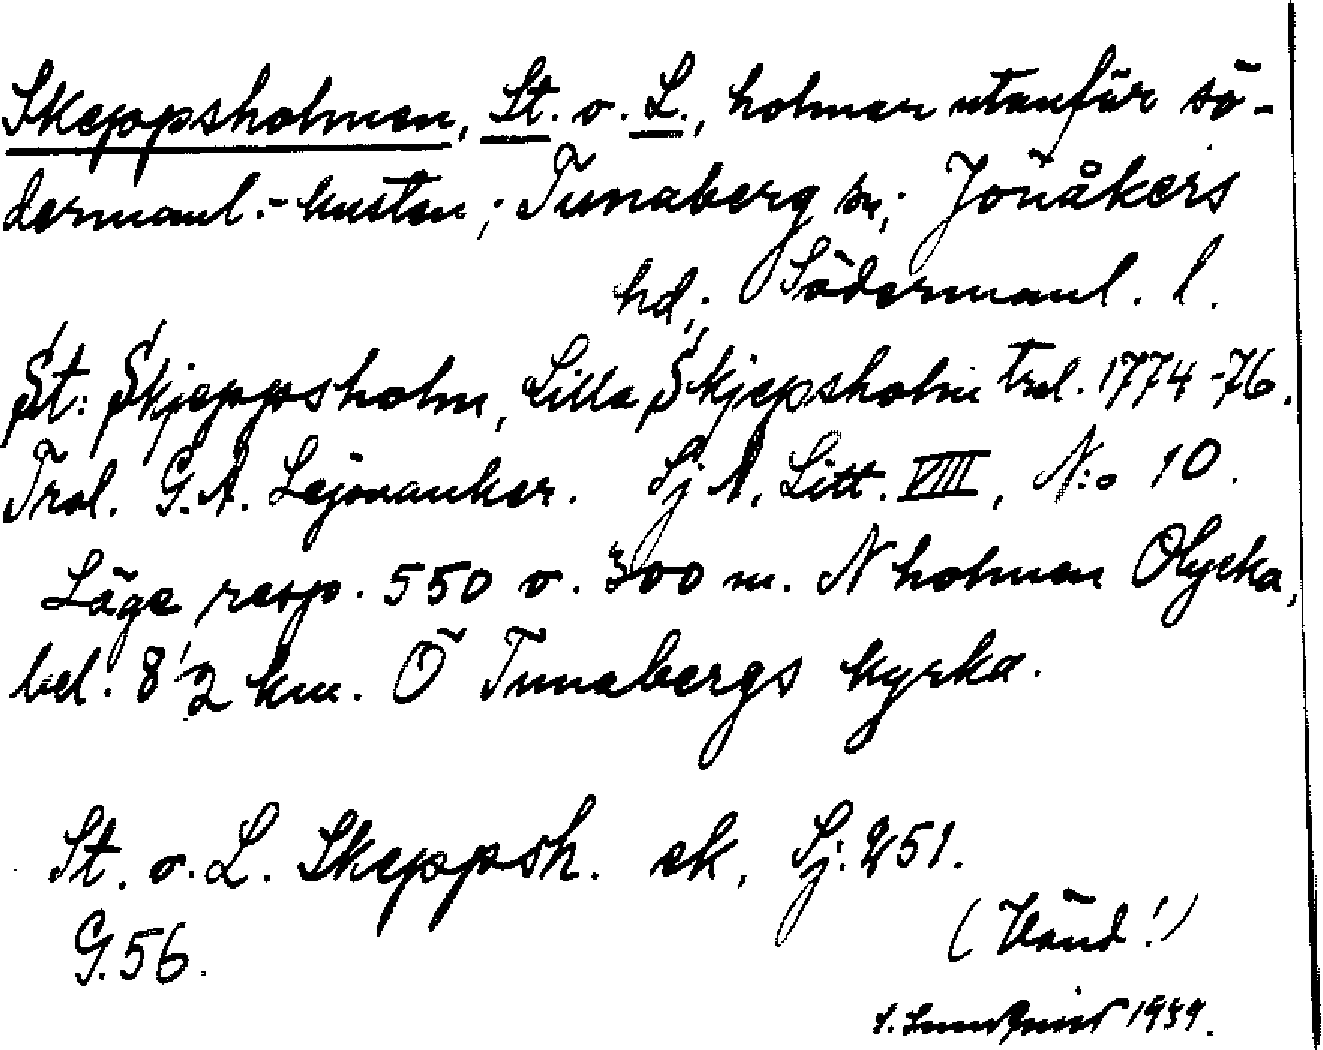 Skeppsholmen, St. o. L., holmar utanför sö-
dermanl.-kusten; Tunaberg sn; Jönåkers
hd; Södermanl. l.
St: Skjeppsholm, Lilla Skjepsholm Trol. 1774-76.
Trol. G.A. Lejonanker. Sj A. Litt. VIII, N:o 10.
Läge resp. 550 o. 300 m. N holmen Olycka,
bel. 8 1/2 km. Ö Tunabergs kyrka.
St. o. L. Skeppsh. ek, Sj. 251.
G. 56.
(Vänd!)
S. Lundquist 1939.